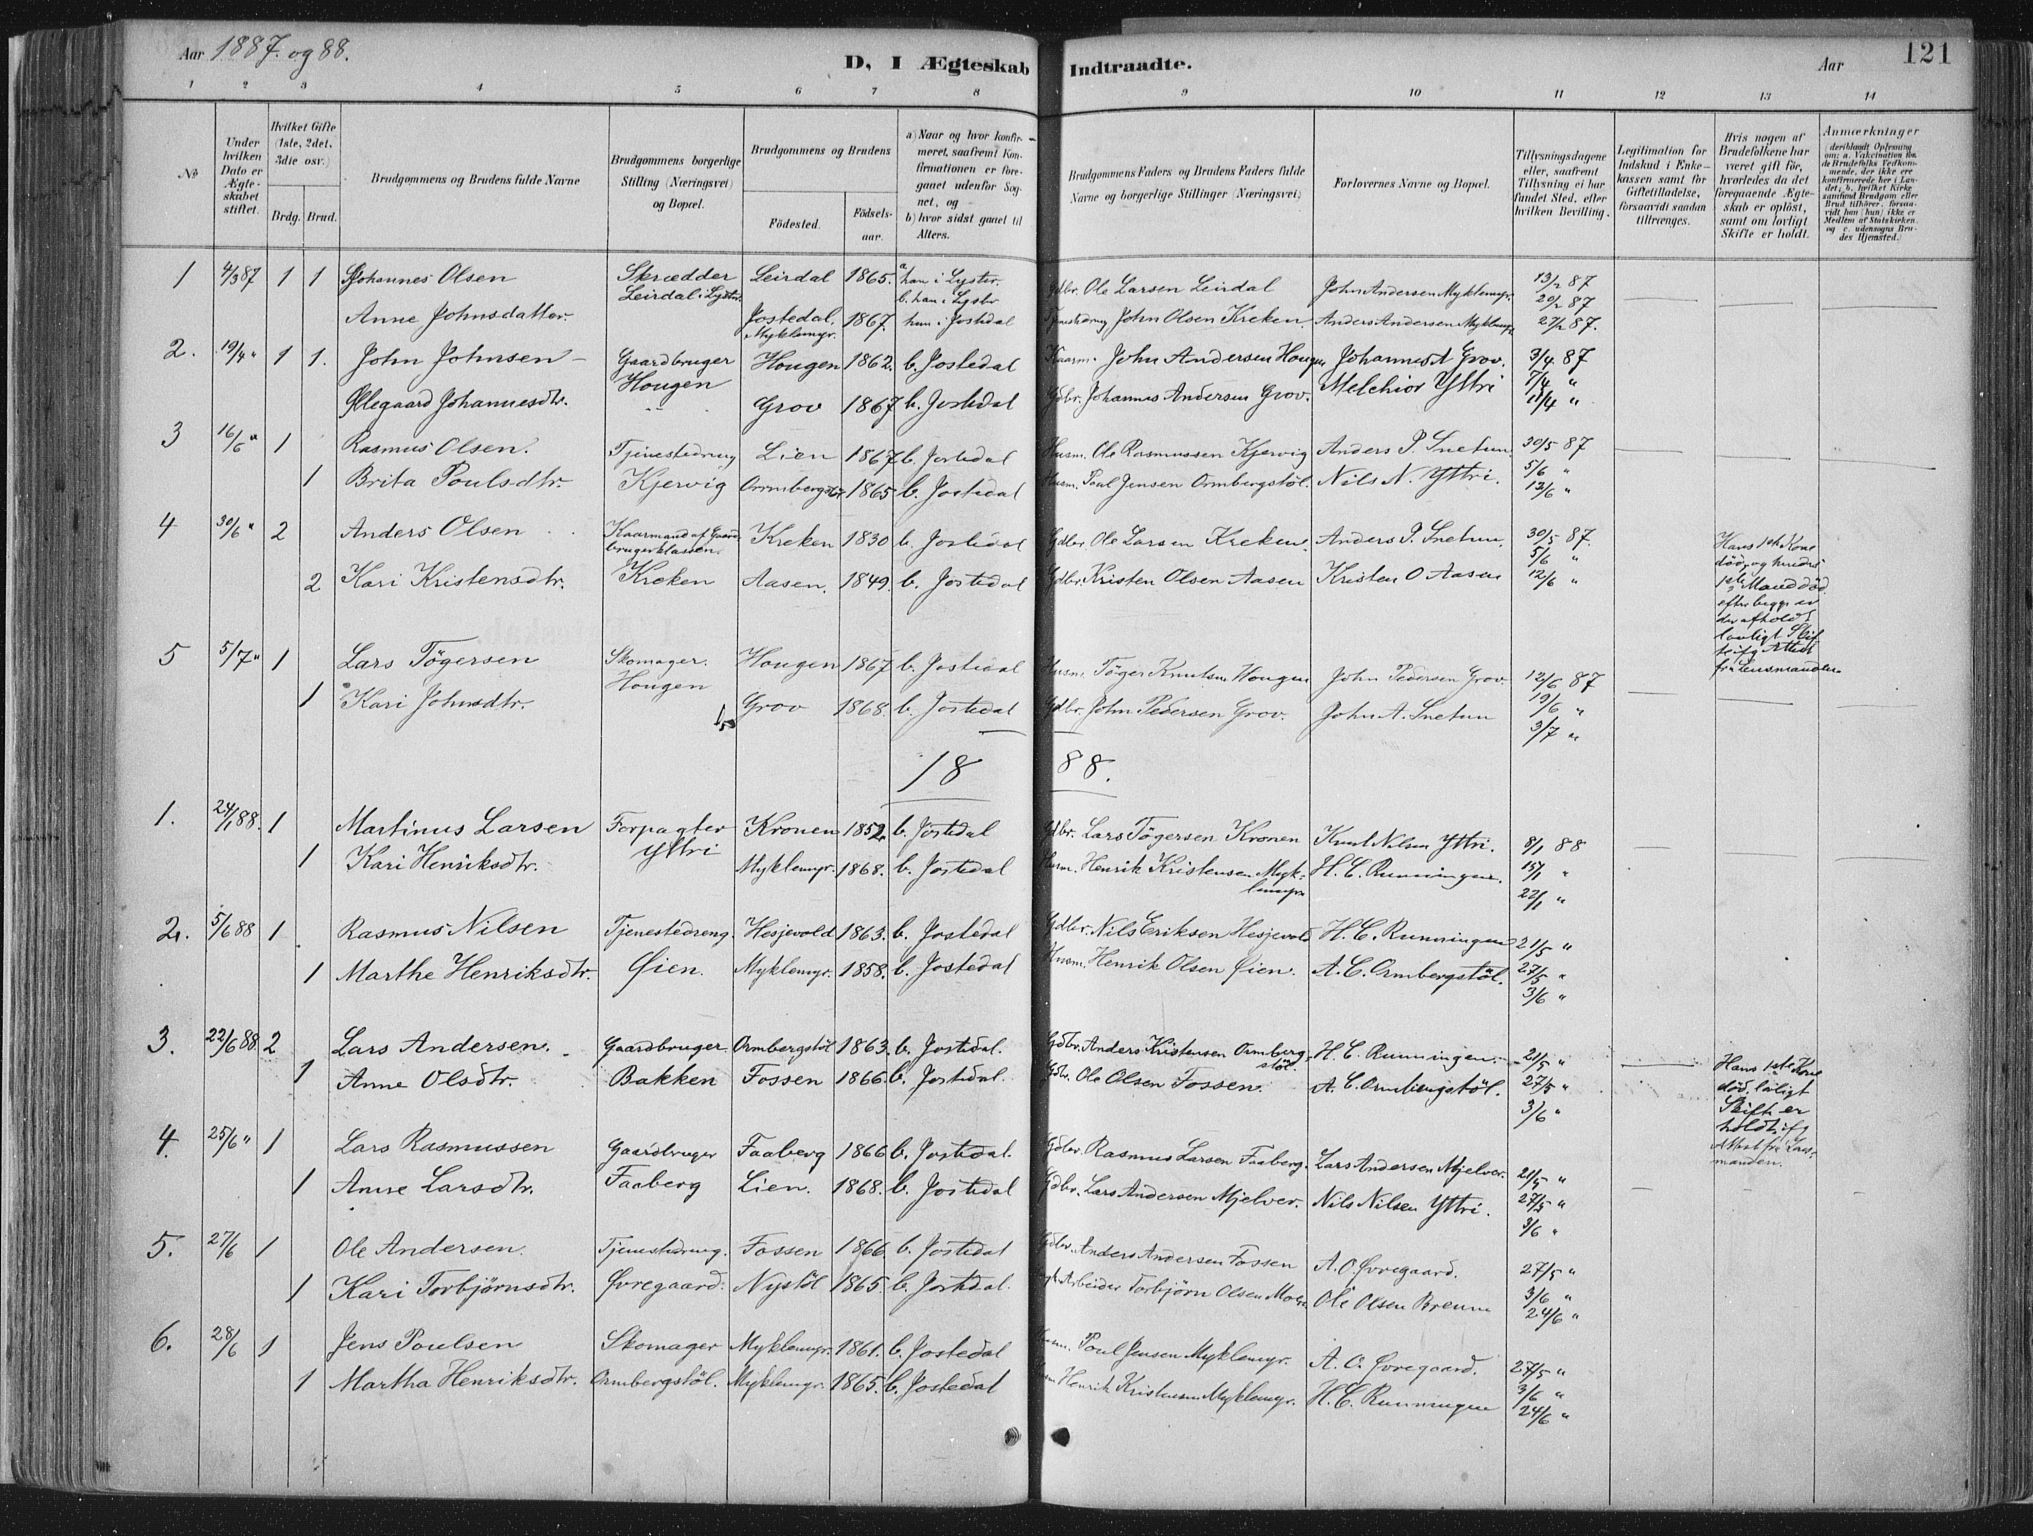 Aar 1887. og 88.
D, I Ægteskab Indtraadte.
Aar
121
1 2 3 4 5 6 7 8 9 10 11 12 13 14
No
Under hvilken Dato er Ægteskabet stiftet.
Hvilket Gifte (1ste, 2det, 3die osv.)
Brdg. Brud.
Brudgommens og Brudens fulde Navne
Brudgommens borgerlige Stilling (Næringsvei) og Bopæl.
Brudgommens og Brudens
Födested.
Födselsaar.
a) Naar og hvor konfirmeret, saafremt Konfirmationen er foregaaet udenfor Sognet, og
b) hvor sidst gaaet til Alters.
Brudgommens Faders og Brudens Faders fulde Navne og borgerlige Stillinger (Næringsvei)
Forlovernes Navne og Bopæl.
Tillysningsdagene eller, saafremt Tillysning ei har fundet Sted, efter hvilken Bevilling.
Legitimation for Indskud i Enkekassen samt for Giftetilladelse, forsaavidt saadan tiltrænges.
Hvis nogen af Brudefolkene har været gift för, hvorledes da det foregaaende Ægteskab er oplöst, samt om lovligt Skifte er holdt.
Anmærkninger
(deriblandt Oplysning om: a. Vaccination for de Brudefolks Vedkommende, der ikke ere konfirmerede her i Landet; b. hvilket Kirkesamfund Brudgom eller Brud tilhörer, forsaavidt han (hun) ikke er Medlem af Statskirken, og c. udensogns Brudes Hjemsted.)
1 4/3 87 1 1 Johannes Olsen Skrædder Leirdal 1865. a han i Lyster. Gdbr. Ole Larsen Leirdal John Andersen Myklemyr. 13/2 87
Leirdal i Lyster b. han i Lyster 20/2 87
Anne Johnsdatter. Jostedal, Myklemyr. 1867. hun i Jostedal John Olsen Kreken Anders Andersen Myklemyr 27/2 87.
2. 19/4 " 1 1. John Johnsen Gaardbruger Hougen 1862. b. Jostedal Kaarm. John Andersen Hougen Johannes A Grov. 3/4 87
Hougen 7/4 "
Øllegaard Johannesdtr. Grov 1867 b. Jostedal Gdbr. Johannes Andersen Grov. Melchior Yttri 11/4 "
3 16/6 " 1 Rasmus Olsen. Tjenestedreng Lien 1867 b. Jostedal Husm. Ole Rasmussen Kjervig Anders P. Snetun 30/5 87
5/6 "
1 Brita Poulsdtr. Kjervig Ormbergstöl 1865 b. Jostedal Husm. Paul Jensen Ormbergstöl. Nils N. Yttri. 12/6 "
4 30/6 " 2 Anders Olsen Kaarmand af Gaardbrugerklassen. Kreken 1830 b. Jostedal Gdbr. Ole Larsen Kreken. Anders P. Snetun. 30/5 87.
5/6 "
2 Kari Kristensdtr. Kreken Aasen. 1849. b. Jostedal Gdbr. Kristen Olsen Aasen Kristen O Aasen 12/6 "
Hans 1ste Kone
död, og hendes
1ste Mand död
efter begge er
der afholdt
lovligt Skifte
ifg Attest
fra Lensmanden
5 5/7 " 1 Lars Tögersen Skomager. Hougen 1867 b. Jostedal Husm. Töger Knutsen Hougen John Pedersen Grov 12/6 87
Hougen 19/6 "
1 Kari Johnsdtr. Grov 1868. b. Jostedal Gdbr. John Pedersen Grov. John A. Snetun 3/7 "
1888.
1. 24/1 88. 1 Martinus Larsen Forpagter Kronen 1852. b. Jostedal Gdbr. Lars Tögersen Kronen Knut Nilsen Yttri. 8/1 88
Yttri 15/1 "
1 Kari Henriksdtr. Myklemyr. 1868. b. Jostedal Husm. Henrik Kristensen Myklemyr H. C. Runningen. 22/1 "
2. 5/6 88 1 Rasmus Nilsen Tjenestedreng. Hesjevold 1863. b. Jostedal Gdbr. Nils Eriksen Hesjevold H. C. Runningen 21/5 "
27/5 "
1 Marthe Henriksdtr. Øien. Myklemyr. 1858. b. Jostedal Husm. Henrik Olsen Øien. A. C. Ormbergstöl. 3/6 "
3. 22/6 88. 2 Lars Andersen. Gaardbruger Ormbergstöl 1863. b. Jostedal. Gdbr. Anders Kristensen Ormbergstöl. H. C. Runningen. 21/5 "
1 Anne Olsdtr. Bakken Fossen 1866. b. Jostedal. Gdbr. Ole Olsen Fossen. A. C. Ormbergstöl. 27/5 "
3/6 "
Hans 1ste Kone
död. lovligt
Skifte er
holdt, ifg
Attest fra Lensmanden.
4. 25/6 " 1 Lars Rasmussen Gaardbruger Faaberg 1866 b. Jostedal. Gdbr. Rasmus Larsen Faaberg. Lars Andersen Mjelver. 21/5 "
1 Anne Larsdtr. Faaberg Lien. 1868. b. Jostedal Gdbr. Lars Andersen Mjelver. Nils Nilsen Yttri. 27/5 "
3/6 "
5. 27/6 1 Ole Andersen. Tjenestedreng. Fossen 1866 b. Jostedal Gdbr. Anders Andersen Fossen A. O. Øvregaard. 27/5 "
3/6 "
1 Kari Torbjørnsdtr. Øvregaard. Nystöl 1865. b. Jostedal. Arbeider Torbjørn Olsen Ole Olsen Breum 24/6 "
6. 28/6 1 Jens Poulsen Skomager Myklemyr. 1861. b. Jostedal Husm. Poul Jensen Myklemyr. A. O. Øvregaard. 27/5 "
3/6 "
1 Martha Henriksdtr. Ormbergstöl. Myklemyr. 1865. b. Jostedal Henrik Kristensen Myklemyr. H. C. Runningen 24/6 "